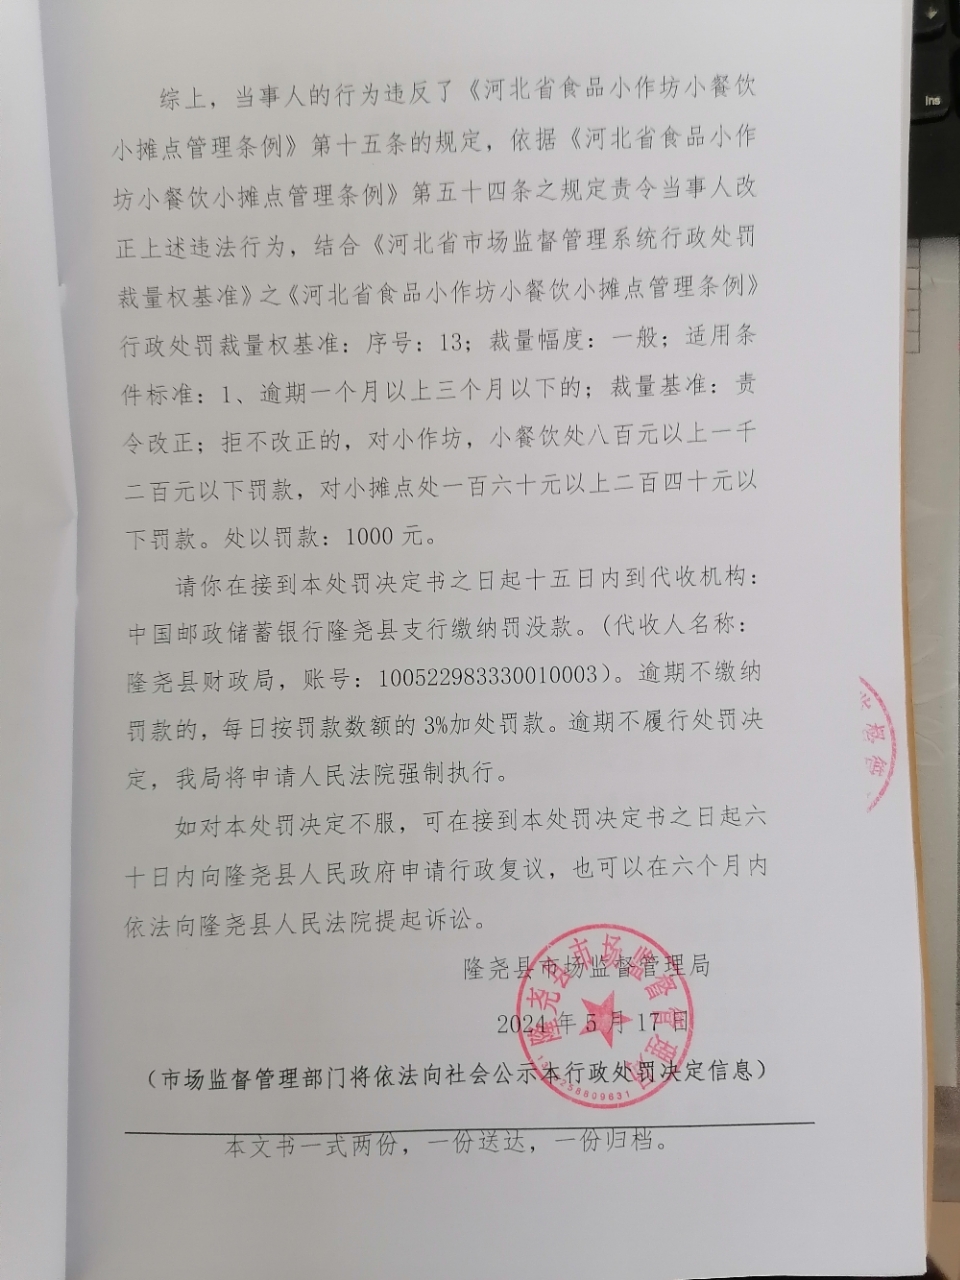 Ins
综上，当事人的行为违反了《河北省食品小作坊小餐饮
小摊点管理条例》第十五条的规定，依据《河北省食品小作
坊小餐饮小摊点管理条例》第五十四条之规定责令当事人改
正上述违法行为，结合《河北省市场监督管理系统行政处罚
裁量权基准》之《河北省食品小作坊小餐饮小摊点管理条例》
行政处罚裁量权基准：序号：13；裁量幅度：一般；适用条
件标准：1、逾期一个月以上三个月以下的；裁量基准：责
令改正；拒不改正的，对小作坊，小餐饮处八百元以上一千
二百元以下罚款，对小摊点处一百六十元以上二百四十元以
下罚款。处以罚款：1000 元。
请你在接到本处罚决定书之日起十五日内到代收机构：
中国邮政储蓄银行隆尧县支行缴纳罚没款。(代收人名称：
隆尧县财政局，账号：100522983330010003)。逾期不缴纳
罚款的，每日按罚款数额的 3%加处罚款。逾期不履行处罚决
定，我局将申请人民法院强制执行。
如对本处罚决定不服，可在接到本处罚决定书之日起六
十日内向隆尧县人民政府申请行政复议，也可以在六个月内
依法向隆尧县人民法院提起诉讼。
隆尧县市场监督管理局
2024 年 5 月 17 日
隆尧县市场监督管理局
（市场监督管理部门将依法向社会公示本行政处罚决定信息）
本文书一式两份，一份送达，一份归档。